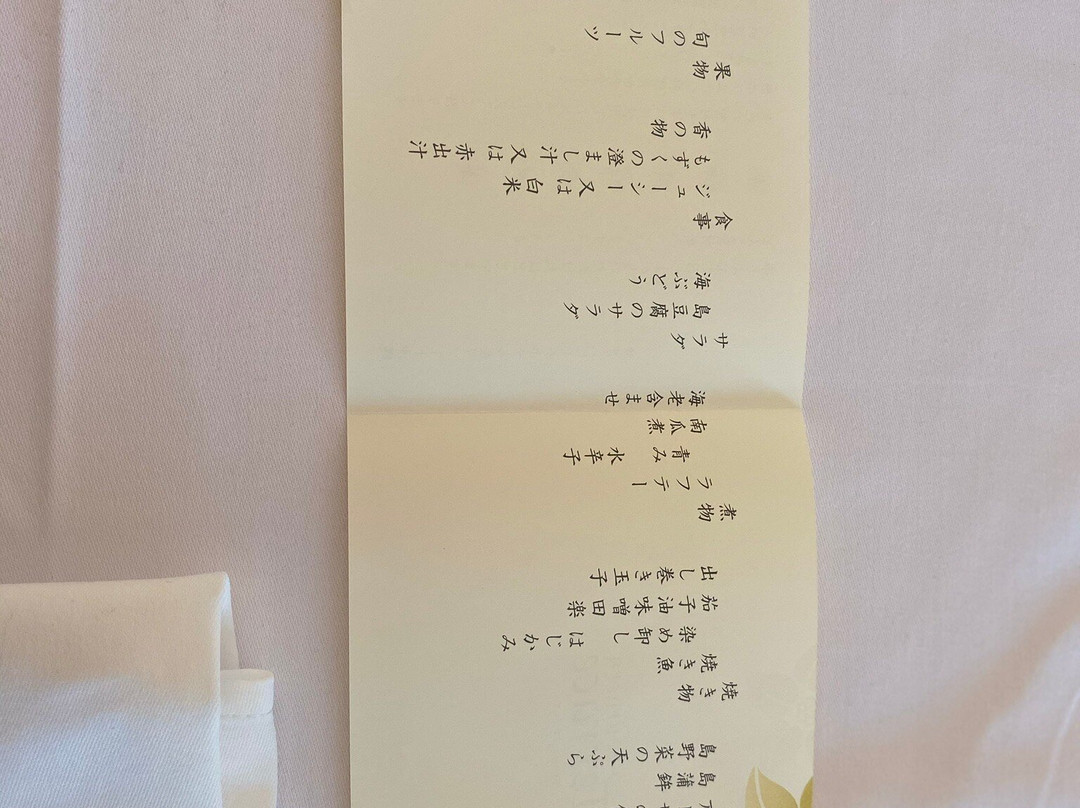 島蒲鉾
島野菜の天ぷら
焼き物
焼き魚
染め卸し はじかみ
茄子油味噌田楽
出し巻き玉子
煮物
ラフテー
青み 水辛子
南瓜煮
海老含ませ
サラダ
島豆腐のサラダ
海ぶどう
食事
ジューシー又は白米
もずくの澄まし汁又は赤出汁
香の物
果物
旬のフルーツ